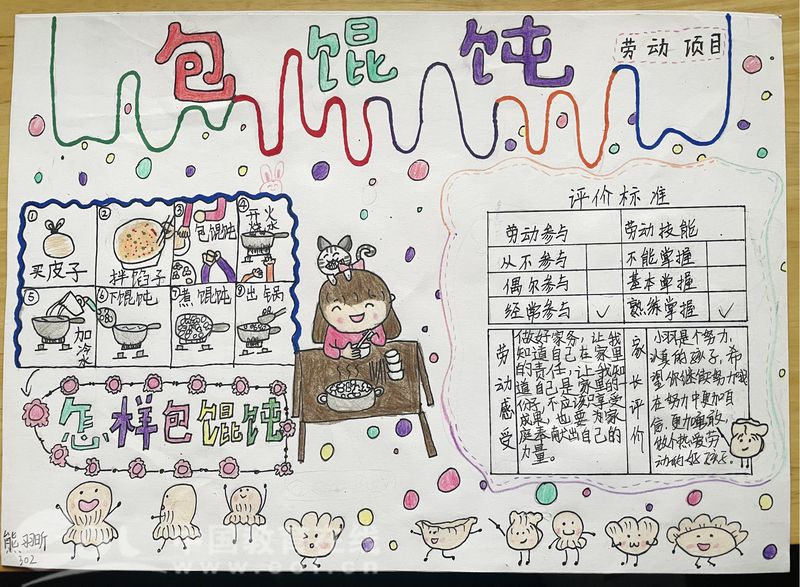 包馄饨
劳动项目
① ② ③ ④
买皮子
拌馅子
包馄饨
开火
烧水
⑤ ⑥ ⑦ ⑧
加冷水
下馄饨
煮馄饨
出锅
怎样包馄饨
评价标准
劳动参与 劳动技能
从不参与 不能掌握
偶尔参与 基本掌握
经常参与 ✓ 熟练掌握 ✓
劳动感受
做好家务，让我
知道自己在家里
的责任；让我知
道自己是家里的一
份子，不应该只享受
成果，也要为家
庭奉献出自己的
力量。
家长评价
小羽是个努力、
认真的孩子，希
望你继续努力
在努力中更加自
信、更加勇敢，
做个热爱劳
动的好孩子。
熊羽昕
302
中国教育在线
www.eol.cn